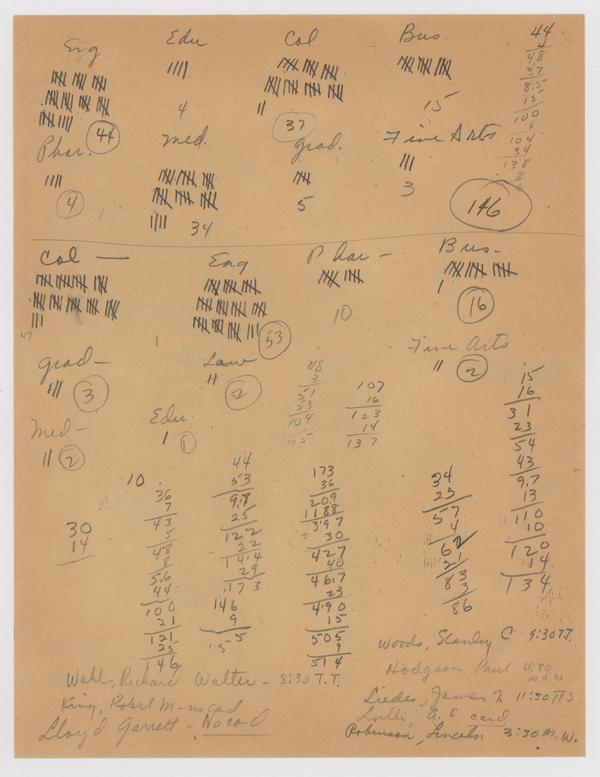 Eng Edu Col Bus.
44 4 37 15
Phar. Med. Grad. Fine Arts
4 34 5 3
146
44
4
48
37
85
15
100
4
104
34
138
8
Col — Eng Phar — Bus —
53 10 16
Grad — Law Fine Arts
3 2 2
Med — Edu.
2 1
48
3
51
53
104
1
105
107
16
123
14
137
15
16
31
23
54
43
97
13
110
10
120
14
134
30
14
10
36
7
43
5
48
8
56
44
100
21
121
25
146
44
53
97
25
122
22
144
29
173
146
9
173
36
209
188
397
30
427
40
467
23
490
15
505
9
514
34
23
57
4
62
21
83
3
86
Woods, Stanley C 9:30 T.T.
Hodgson, Paul 4:30
M & W
Wahl, Richard Walter — 8:30 T.T.
King, Robert M — no card
Lloyd Garrett — No card
Liedes, James 11:30 TTS
Lulli, A. E card
Robinson, Lincoln 3:30 M. W.